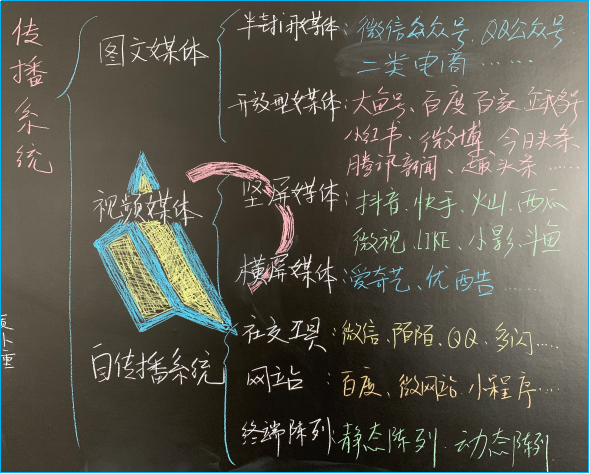 传播系统
图文媒体
半封闭媒体:微信公众号、QQ公众号
二类电商……
开放型媒体:大鱼号、百度百家、企鹅号
小红书、微博、今日头条、
腾讯新闻、趣头条……
视频媒体
竖屏媒体:抖音、快手、火山、西瓜
微视、LIKE、小影、斗鱼
横屏媒体:爱奇艺、优酷……
自传播系统
社交工具:微信、陌陌、QQ、多闪……
网站:百度、微网站、小程序……
终端阵列:静态阵列、动态阵列